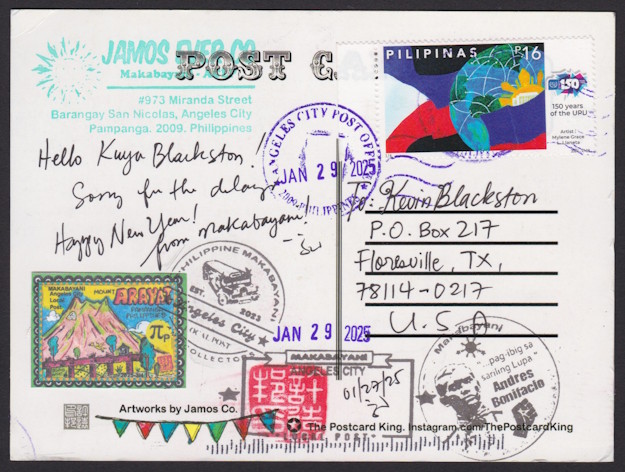 JAMOS EVER CO.
Makabayan
POST C
#973 Miranda Street
Barangay San Nicolas, Angeles City
Pampanga. 2009. Philippines
PILIPINAS ₱16
150
150 years
of the UPU
Artist:
Mylene Grace
ANGELES CITY POST OFFICE
JAN 29 2025
2009 PHILIPPINES
Hello Kuya Blackston!
Sorry for the delay!
Happy New Year!
from Makabayani!
To: Kevin Blackston
P.O. Box 217
Floresville, TX,
78114-0217
U.S.A
PHILIPPINE MAKABAYANI
EST. 2023
Angeles City
LOCAL POST
COLLECTORS
MAKABAYANI
Angeles City
Local
Post
MOUNT
ARAYAT
PAMPANGA
PHILIPPINES
πp
JAN 29 2025
MAKABAYANI
ANGELES CITY
01/27/25
LOCAL POST
Makabayani
...pag-ibig sa
sariling Lupa"
Andres
Bonifacio
Artworks by Jamos Co.
The Postcard King. Instagram.com/ThePostcardKing